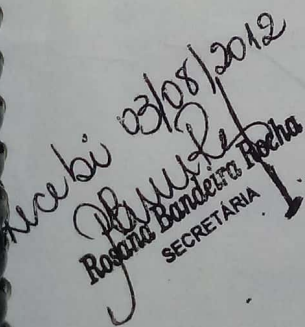 recebi 03/08/2012
Rosana Bandeira Rocha
SECRETÁRIA